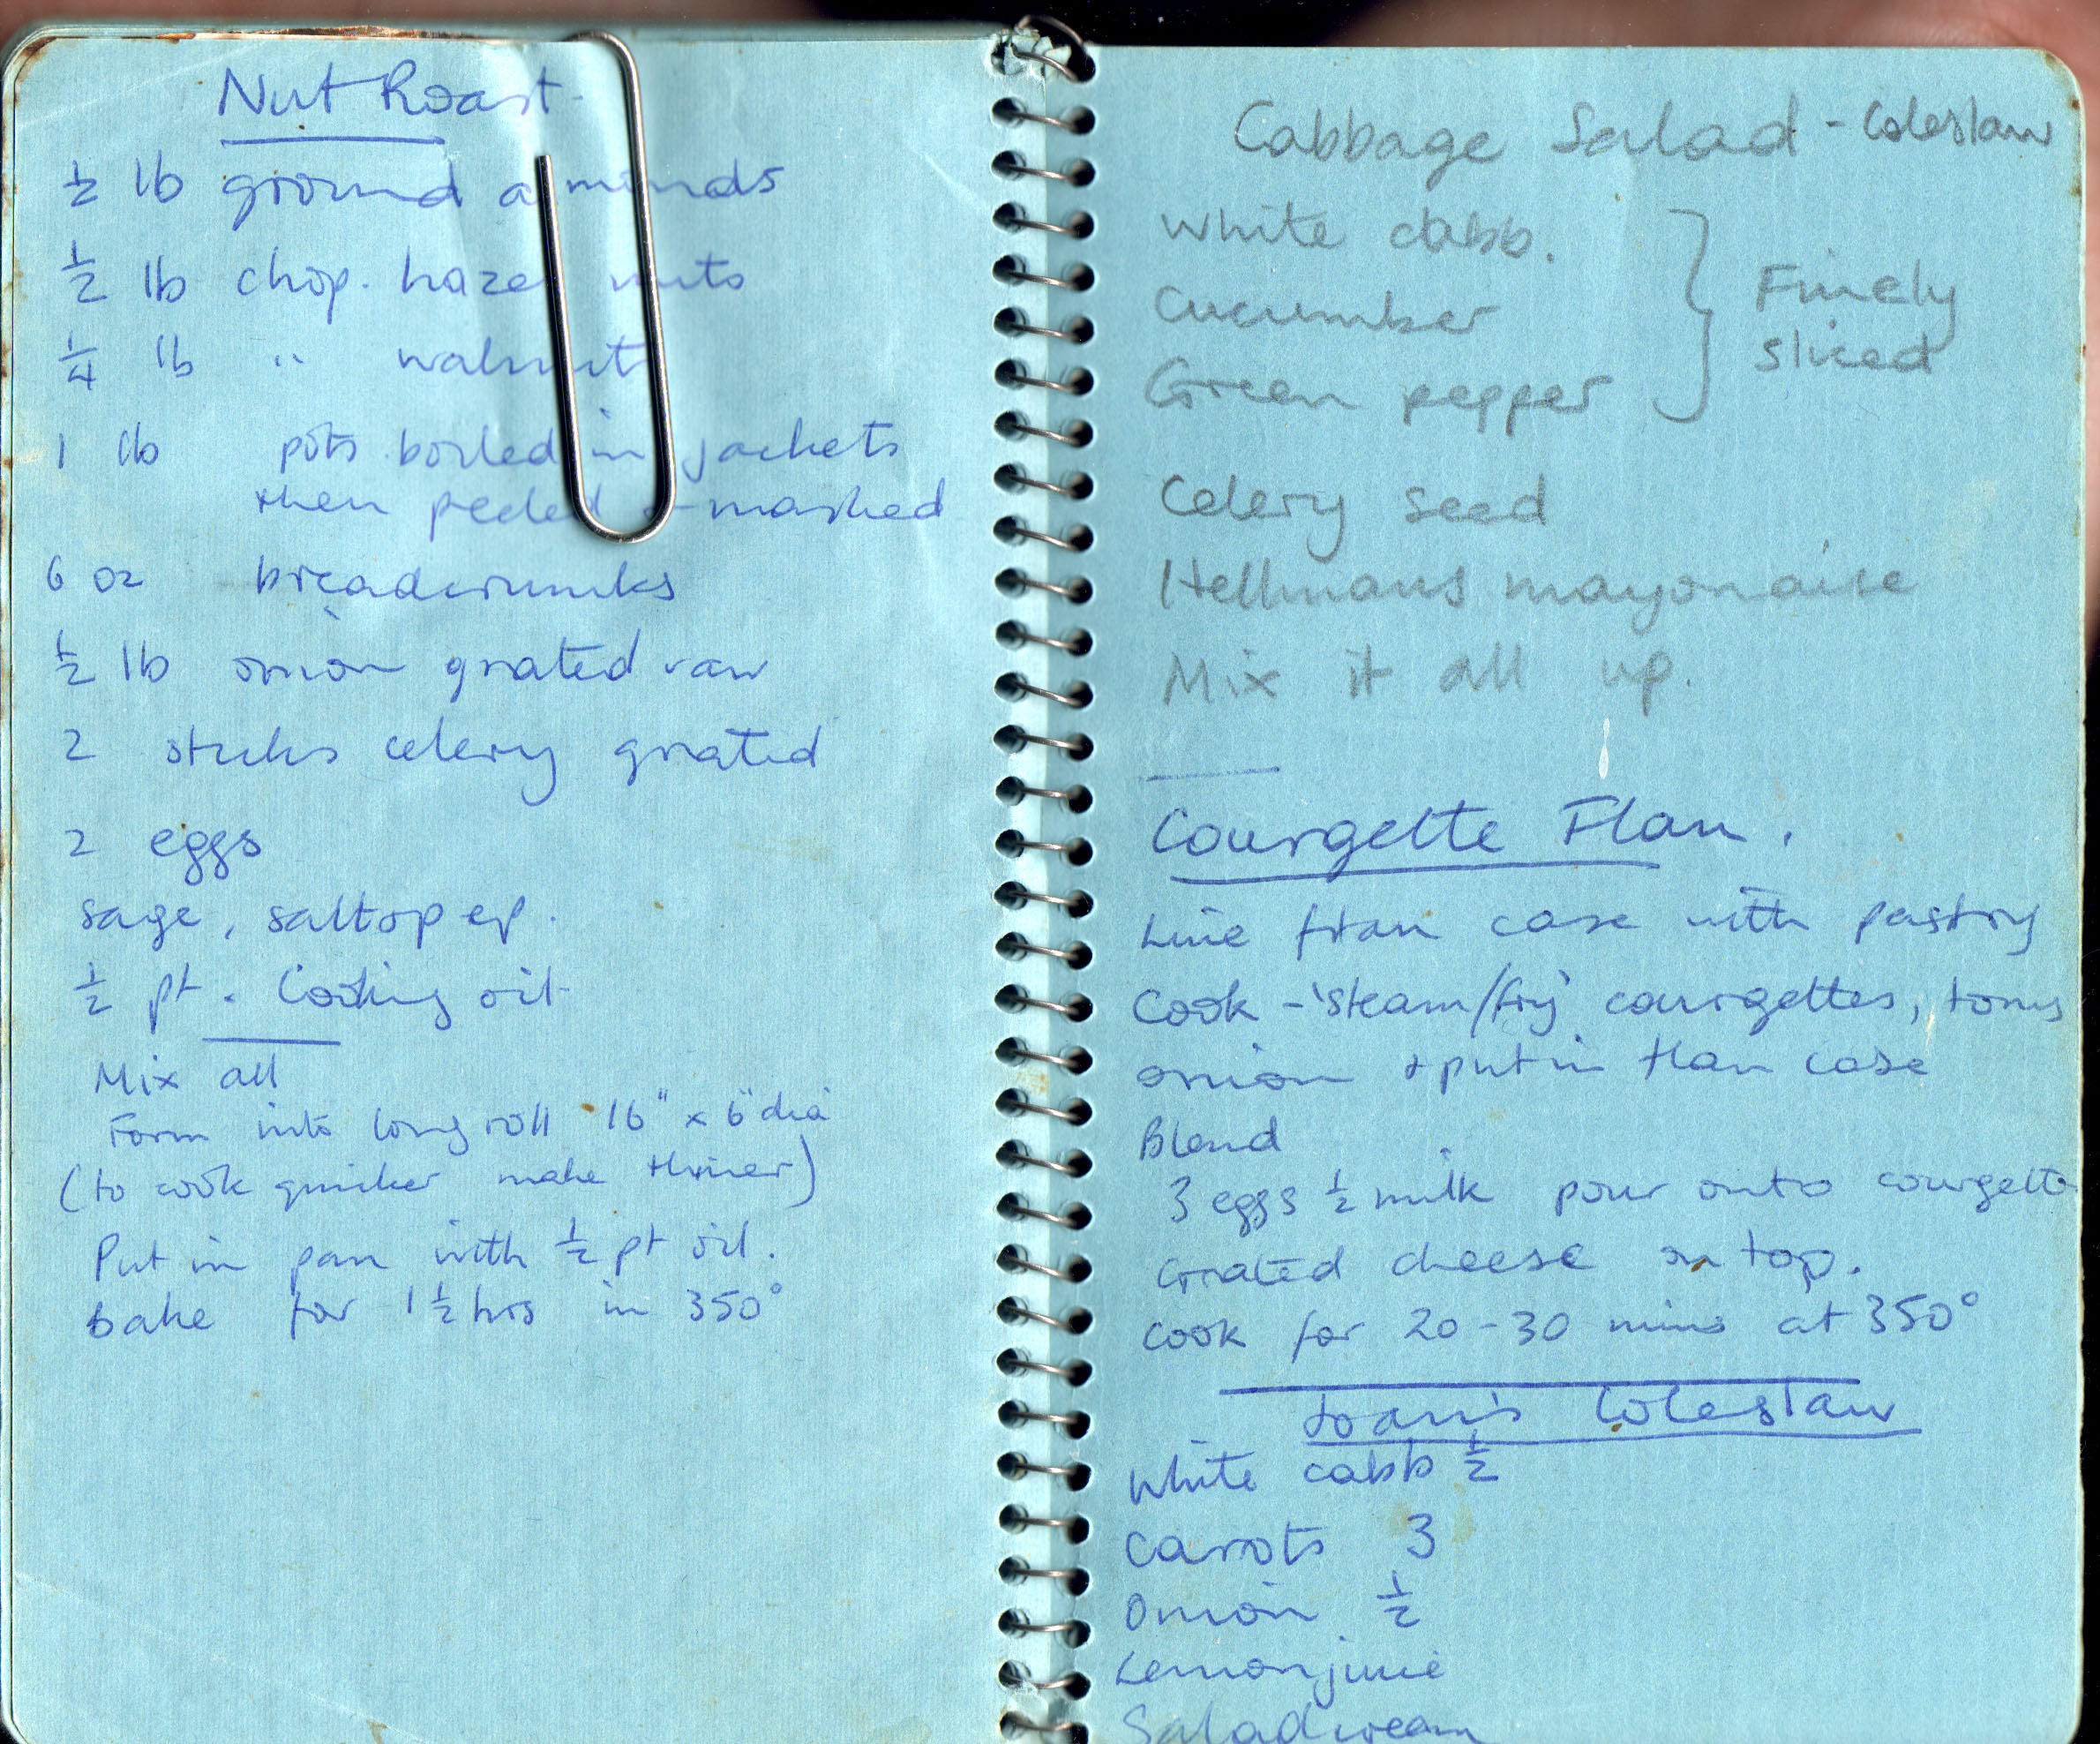 Nut Roast
½ lb ground almonds
½ lb chop. hazel nuts
¼ lb " walnuts
1 lb pots boiled in jackets
then peeled + mashed
6 oz breadcrumbs
½ lb onion grated raw
2 sticks celery grated
2 eggs
sage, salt & pep.
½ pt. Cooking oil
Mix all
Form into long roll 16" x 6" dia
(to cook quicker make thiner)
Put in pan with ½ pt oil.
Bake for 1½ hrs in 350°
Cabbage Salad - Coleslaw
White cabb.
Cucumber
Green pepper
} Finely
sliced
Celery seed
Hellmans mayonaise
Mix it all up.
Courgette Flan.
Line flan case with pastry
Cook - 'steam/fry' courgettes, toms
onion + put in flan case
Blend
3 eggs ½ milk pour onto courgette
Grated cheese on top.
Cook for 20-30 mins at 350°
Coleslaw
White cabb ½
Carrots 3
Onion ½
Lemon juice
Salad cream